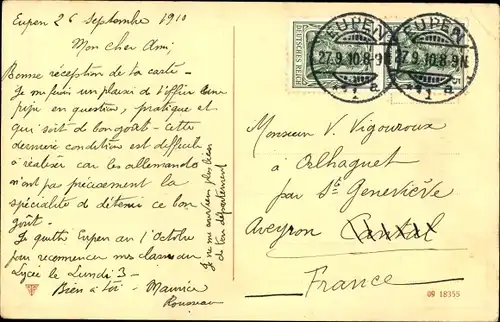 Eupen 26 Septembre 1910
Mon cher Ami,
Bonne réception de ta carte -
Je me ferai un plaisir de t'offrir une
pipe en question, pratique et
qui soit de bon goût - Cette
dernière condition est difficile
à réaliser car les allemands
n'ont pas précisément la
spécialité de détenir ce bon
goût.
Je quitte Eupen au 1 Octobre
pour recommencer mes classes au
Lycée le Lundi 3 -
Bien à toi - Maurice
Rousseau
Je ne me souviens plus bien
de ton département
DEUTSCHES REICH
EUPEN
27.9.10.8-9N
*1 a
EUPEN
27.9.10.8-9N
*1 a
Monsieur V. Vigouroux
à Orlhaguet
par Ste Geneviève
Aveyron Cantal
France
09 18355